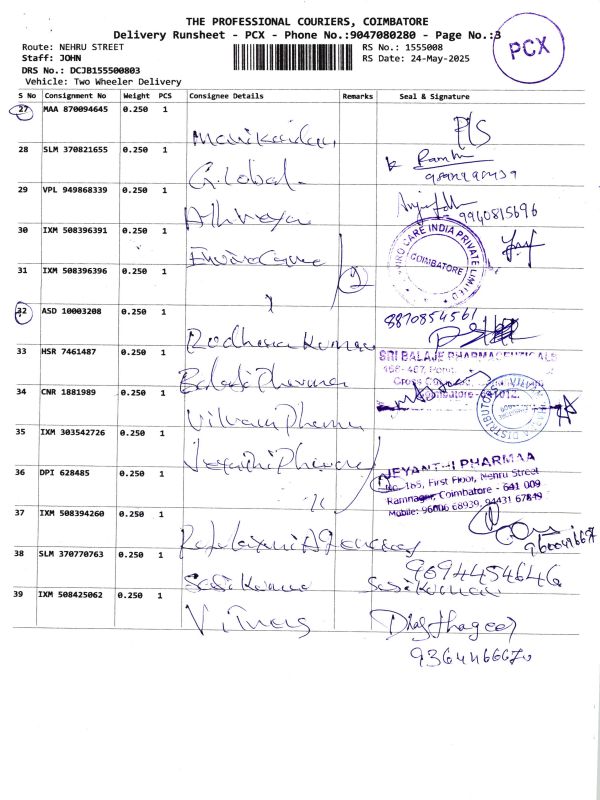 THE PROFESSIONAL COURIERS, COIMBATORE
Delivery Runsheet - PCX - Phone No.:9047080280 - Page No.:3
PCX
Route: NEHRU STREET
RS No.: 1555008
Staff: JOHN
RS Date: 24-May-2025
DRS No.: DCJB155500803
Vehicle: Two Wheeler Delivery
S No Consignment No Weight PCS Consignee Details Remarks Seal & Signature
27 MAA 870094645 0.250 1
Manikandan
28 SLM 370821655 0.250 1
Global
29 VPL 949868339 0.250 1
9940815696
30 IXM 508396391 0.250 1
COIMBATORE
CARE INDIA PRIVATE LIMITED
31 IXM 508396396 0.250 1
2
32 ASD 10003208 0.250 1
8870854561
Radhakumar
33 HSR 7461487 0.250 1
SRI BALAJE PHARMACEUTICALS
Balaji Pharma
34 CNR 1881989 0.250 1
Coimbatore - 641012.
DISTRIBUTORS
Pharma
35 IXM 303542726 0.250 1
Jeyanthi Pharma
JEYANTHI PHARMAA
36 DPI 628485 0.250 1
No. 165, First Floor, Nehru Street
Ramnagar, Coimbatore - 641 009
Mobile: 96006 68939, 94431 67849
37 IXM 508394260 0.250 1
Rajalaxmi Agencies
38 SLM 370770763 0.250 1
9894454646
Sasikumar Sasikumar
39 IXM 508425062 0.250 1